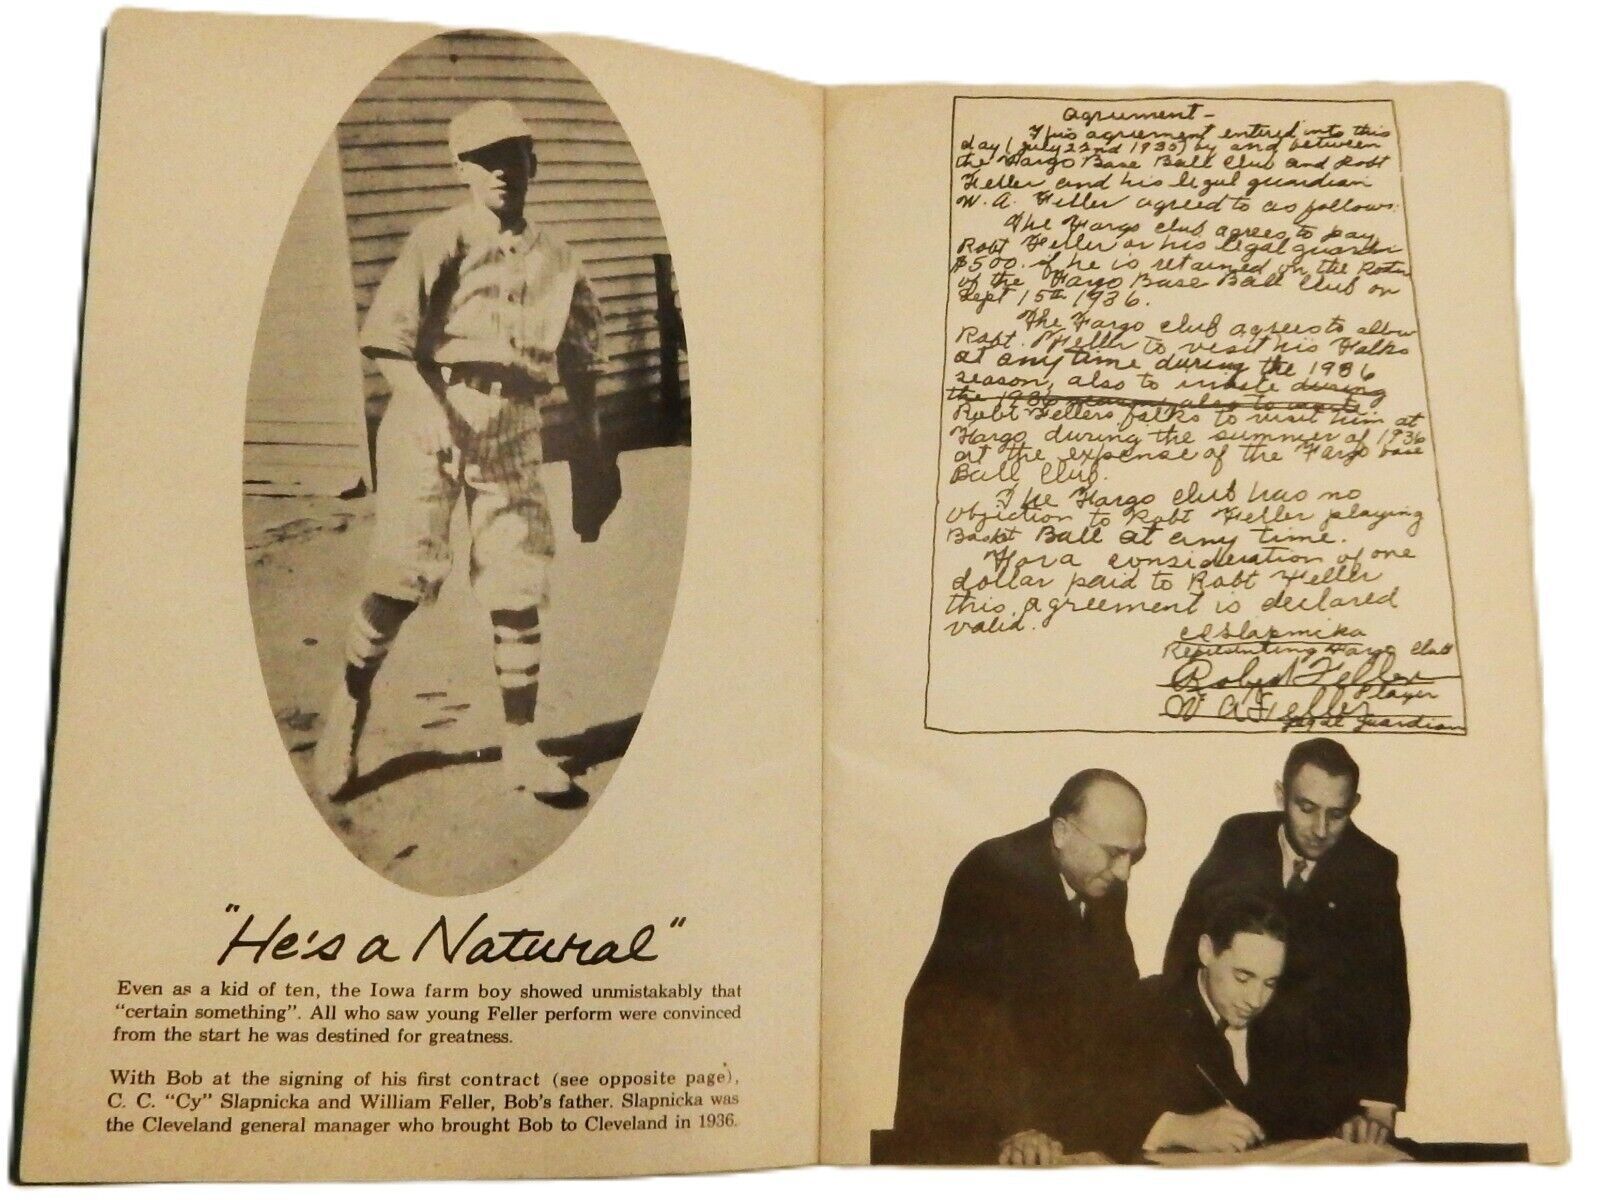 "He's a Natural"
Even as a kid of ten, the Iowa farm boy showed unmistakably that
"certain something". All who saw young Feller perform were convinced
from the start he was destined for greatness.
With Bob at the signing of his first contract (see opposite page),
C. C. "Cy" Slapnicka and William Feller, Bob's father. Slapnicka was
the Cleveland general manager who brought Bob to Cleveland in 1936.
Agrument -
This agreement entered into this
day (July 22nd 1935) by and between
the Fargo Base Ball Club and Robt
Feller and his legal guardian
W. A. Feller agreed to as follows:
The Fargo club agrees to pay
Robt Feller or his legal guardian
$500. if he is retained on the Roster
of the Fargo Base Ball Club on
Sept 15th 1936.
The Fargo club agrees to allow
Robt. Feller to visit his Folks
at any time during the 1936
season, also to invite during
the 1936 season, also to invite
Robt Fellers folks to visit him at
Fargo during the summer of 1936
at the expense of the Fargo base
Ball Club.
The Fargo club has no
objection to Robt Feller playing
Basket Ball at any time.
For a consideration of one
dollar paid to Robt Feller
this agreement is declared
valid.
CCSlapnicka
Representing Fargo Club
Robert Feller
Player
W A Feller
Legal Guardian